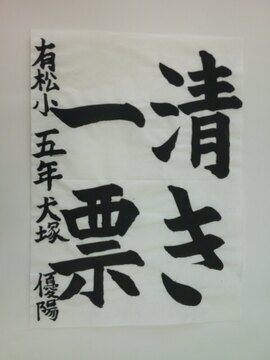 清き
一票
有松小 五年 犬塚 優陽